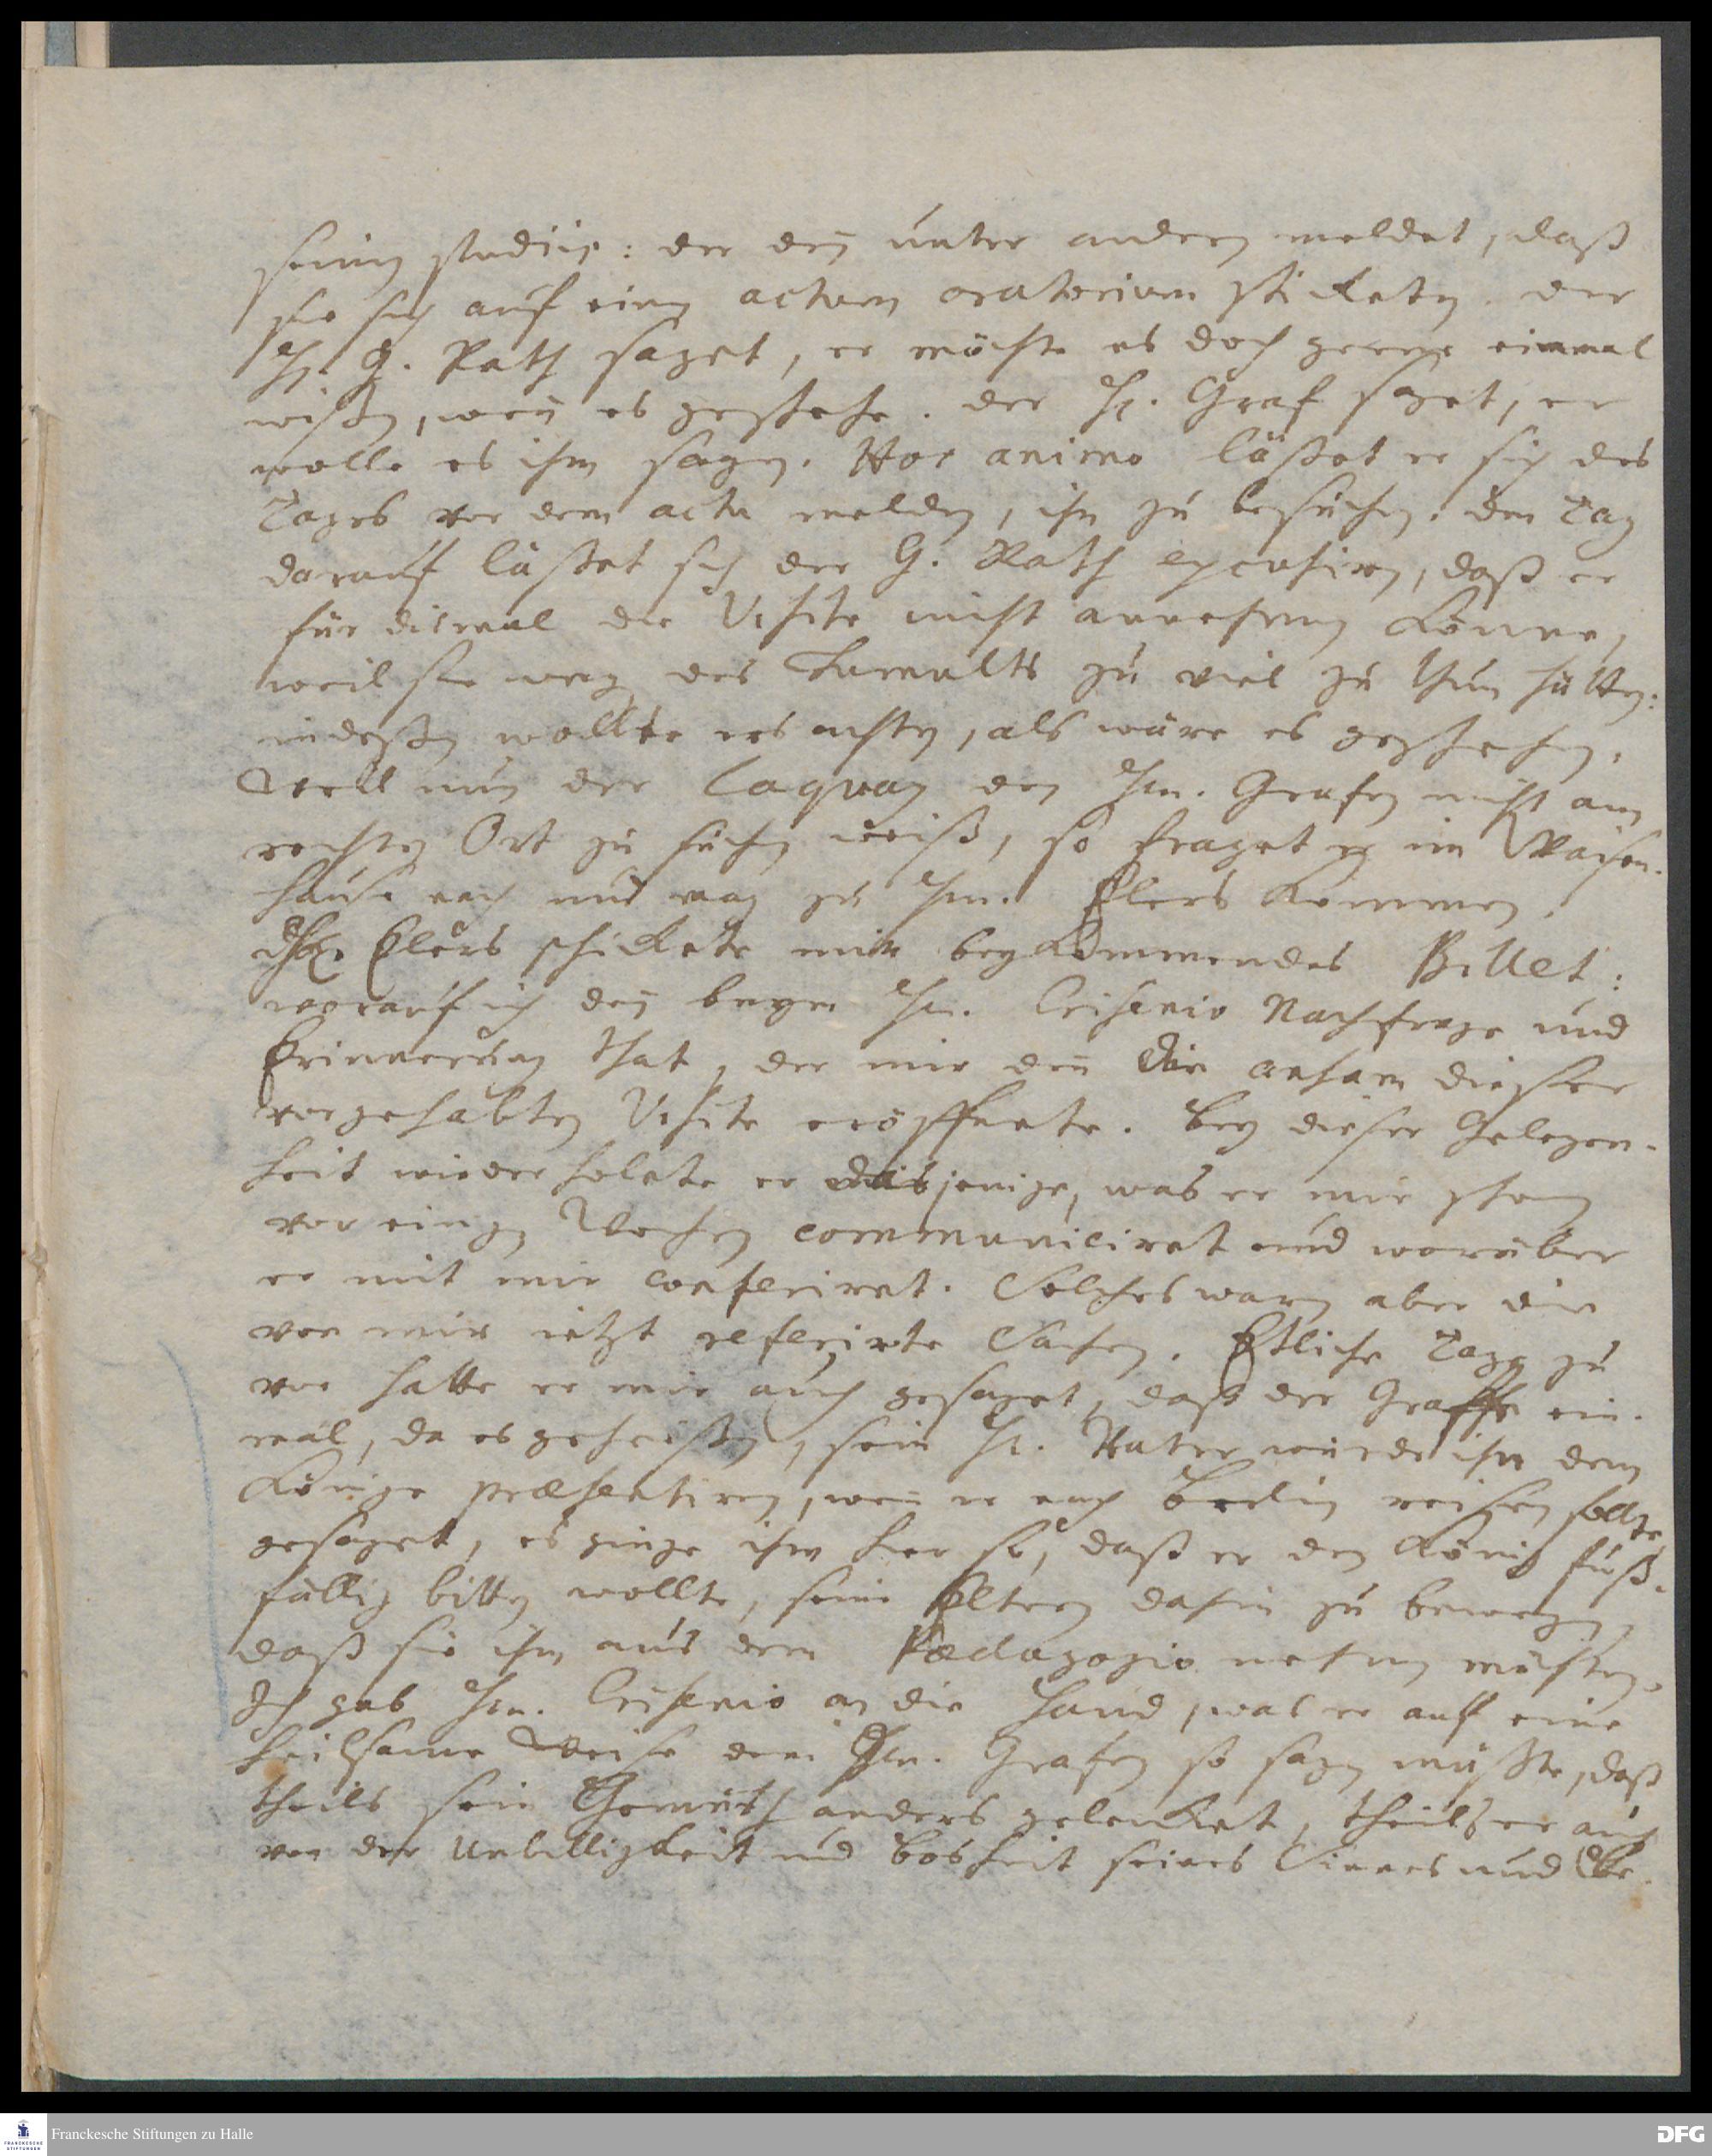 seinen studiis: der deñ unter andern meldet, daß
sie sich auf einen actum oratorium schickten. der
H. G. Rath saget, er möchte es doch gerne einmal
wißen, weñ es geschehe. der H. Graf saget, er
wolle es ihm sagen. Hoc animo läßet er sich des
Tages vor dem actu melden, ihn zu besuchen. den Tag
darauf läßet sich der G. Rath excusiren, daß er
für dismal die Visite nicht annehmen könne,
weil sie wegen des Tumults zu viel zu thun hätten:
indeßen wollte ers achten, als wäre es geschehen.
Weil nun der Laquay den Hrn. Grafen nicht am
rechten Ort zu suchen weiß, so fraget er im Waisen-
hause nach und mag zu Hrn. Elers kommen.
Hr. Elers schickete mir beykommendes Billet:
worauf ich deñ beym Hrn. Crisenio Nachfrage und
Erinnerung that, der mir deñ die ansam dieser
vorgehabten Visite eröffnete. Bey dieser Gelegen-
heit wiederholete er dasjenige, was er mir schon
vor einigen Wochen communiciret und worüber
er mit mir conferiret. Solches waren aber die
von mir ietzt referirte Sachen. Etliche Tage zu
vor hatte er mir auch gesaget, daß der Graffe ein-
mal, da es geheißen, sein H. Vater würde ihn dem
Könige præsentiren, weñ er nach Berlin reisen sollte,
gesaget, es ginge ihm hier so, daß er den König fuß-
fällig bitten wollte, seine Eltern dahin zu bewegen,
daß sie ihn aus dem Pædagogio nehmen möchten.
Ich gab Hrn. Crisenio an die Hand, was er auf eine
heilsame Weise dem Hrn. Grafen so sagen müßte, daß
theils sein Gemüth anders gelencket, theils er auch
von der Unbilligkeit und Bosheit seines Sinnes und Be-
Franckesche Stiftungen zu Halle
FRANCKESCHE STIFTUNGEN
DFG